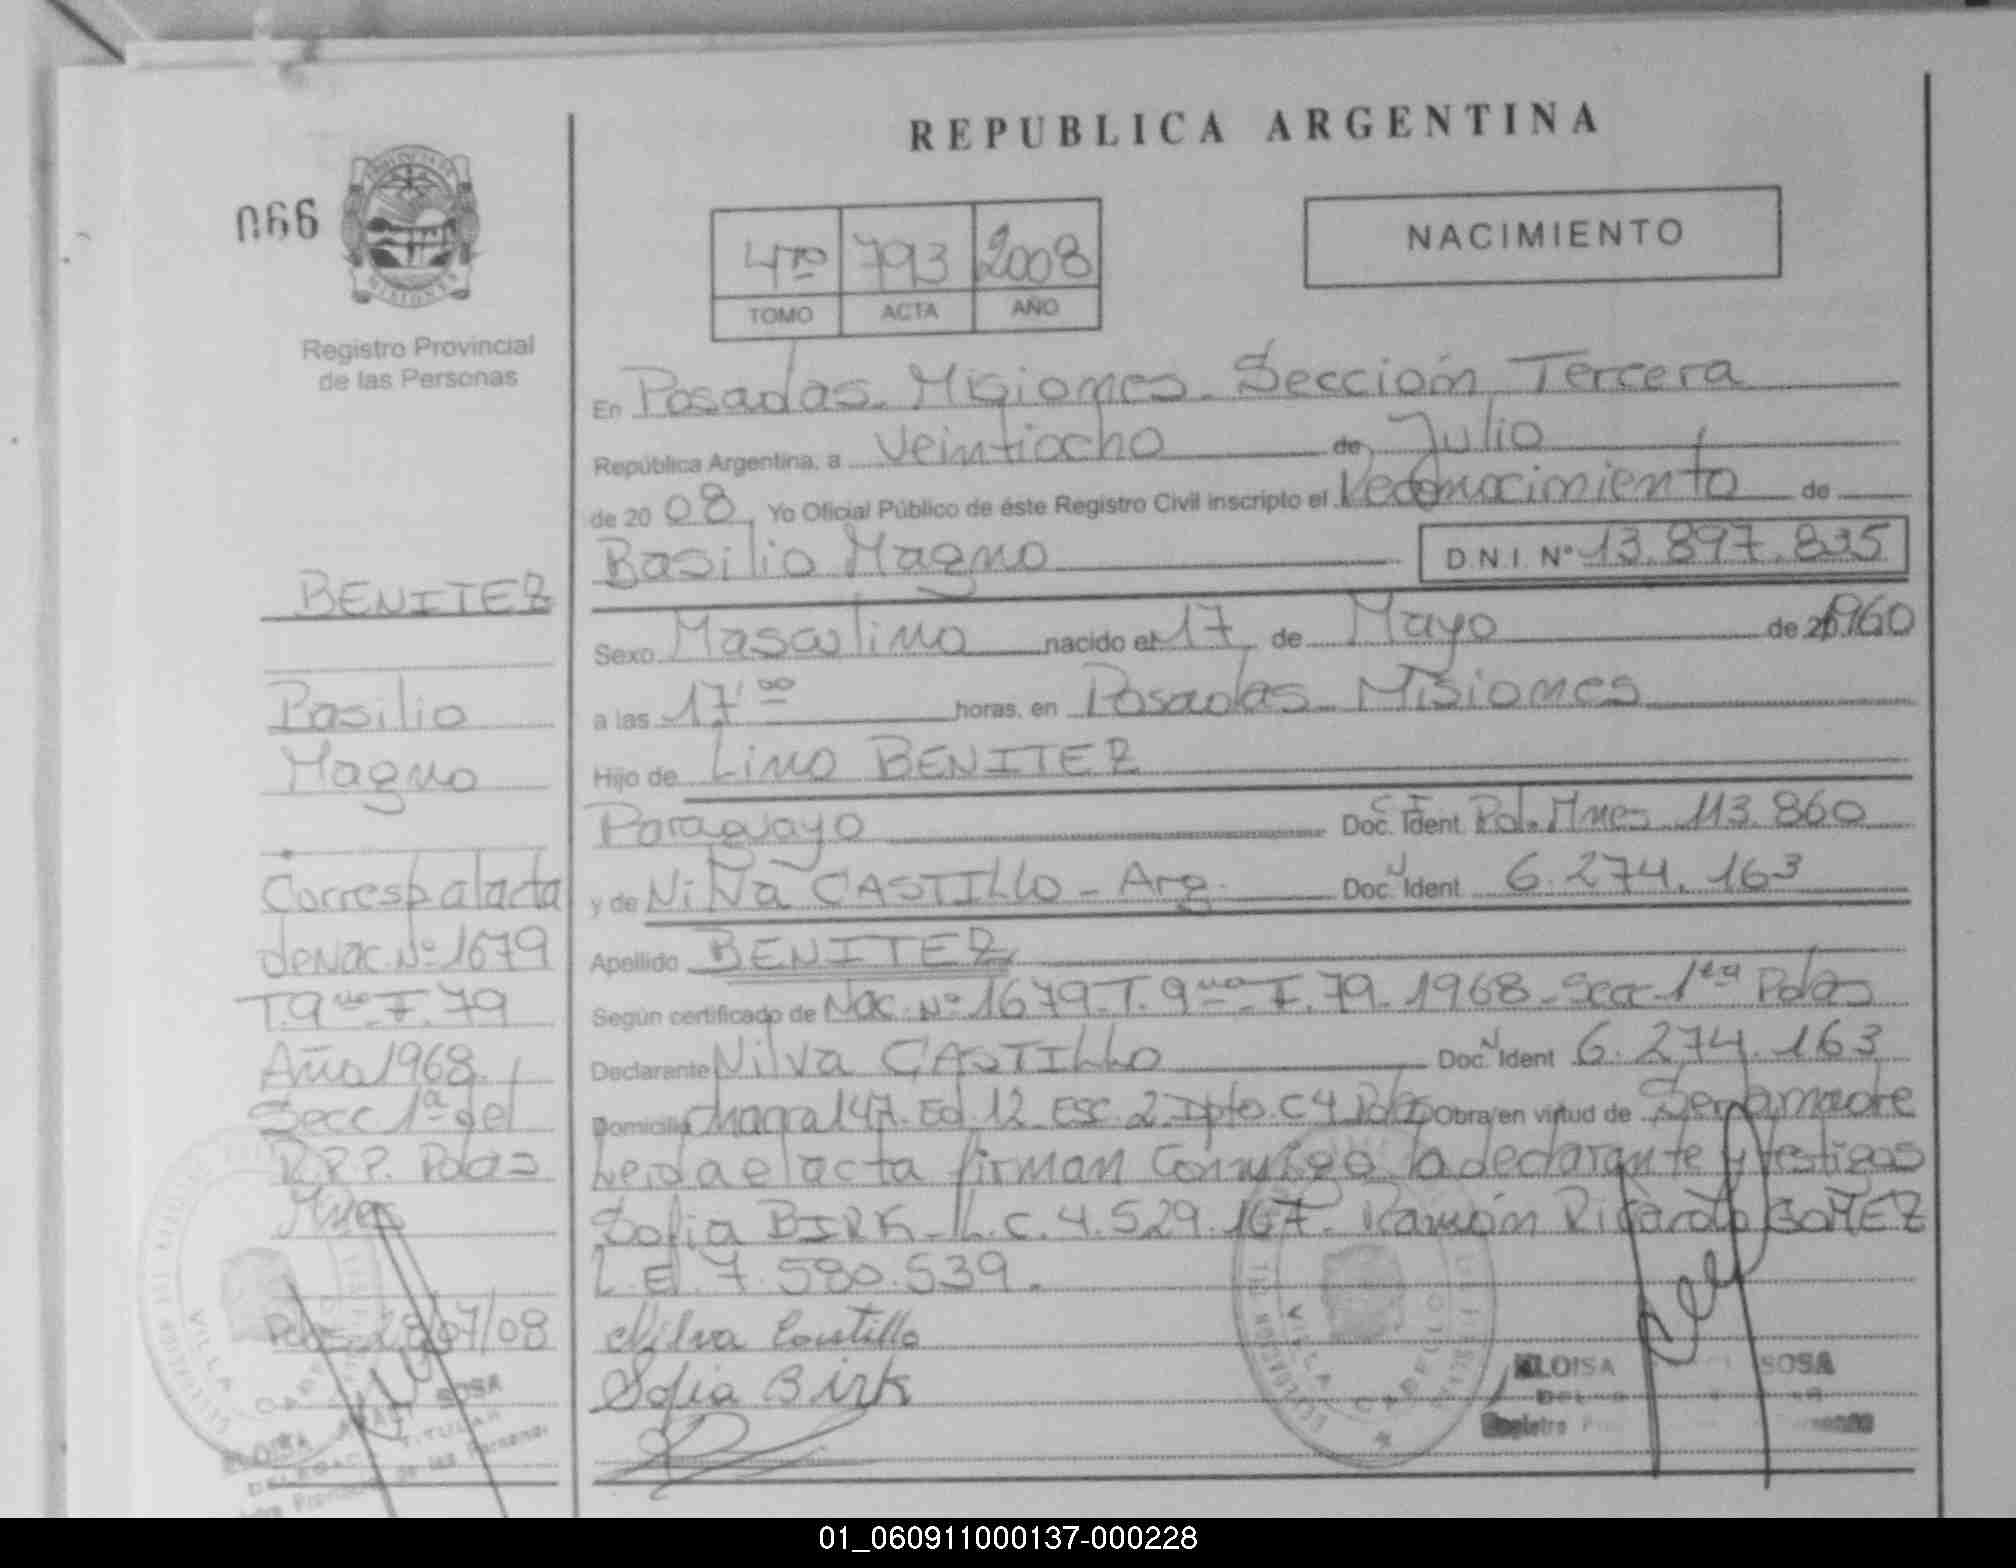 REPUBLICA ARGENTINA
066
PROVINCIA DE
MISIONES
Registro Provincial
de las Personas
NACIMIENTO
4to 793 2008
TOMO ACTA AÑO
En Posadas. Misiones. Sección Tercera
República Argentina, a Veintiocho de Julio
de 20 08, Yo Oficial Público de éste Registro Civil inscripto el Reconocimiento de
Basilio Magno D.N.I. Nº 13.897.835
Sexo Masculino nacido el 17 de Mayo de 1960
a las 17:00 horas, en Posadas Misiones
Hijo de Lino BENITEZ
Paraguayo Doc. Ident. C I Pol. Mnes 113.860
y de NilVa CASTILLO - Arg. Doc. Ident 6.274.163
Apellido BENITEZ
Según certificado de Nac. Nº 1679-T. 9no-F. 79-1968-Secc 1ra Pdas
Declarante Nilva CASTILLO Doc. Ident 6.274.163
Domicilio chacra 147. Ed. 12. Esc. 2 Dpto. C4 Pdas Obra en virtud de Ser la madre
Leida el acta firman Conmigo la declarante y testigos
Sofia BIRK - L.C. 4.529.167. Ramón Ricardo GOMEZ
L.E. 7.580.539.
Nilva Castillo
Sofia Birk
ELOISA SOSA
Registro
VILLA CABELLO
BENITEZ
Basilio
Magno
Corresp al acta
de Nac. Nº 1679
T. 9no F. 79
Año 1968.
Secc 1ª del
R.P.P. Pdas
Mnes
Pdas 28/07/08
VILLA CABELLO
ELOISA SOSA
01_060911000137-000228